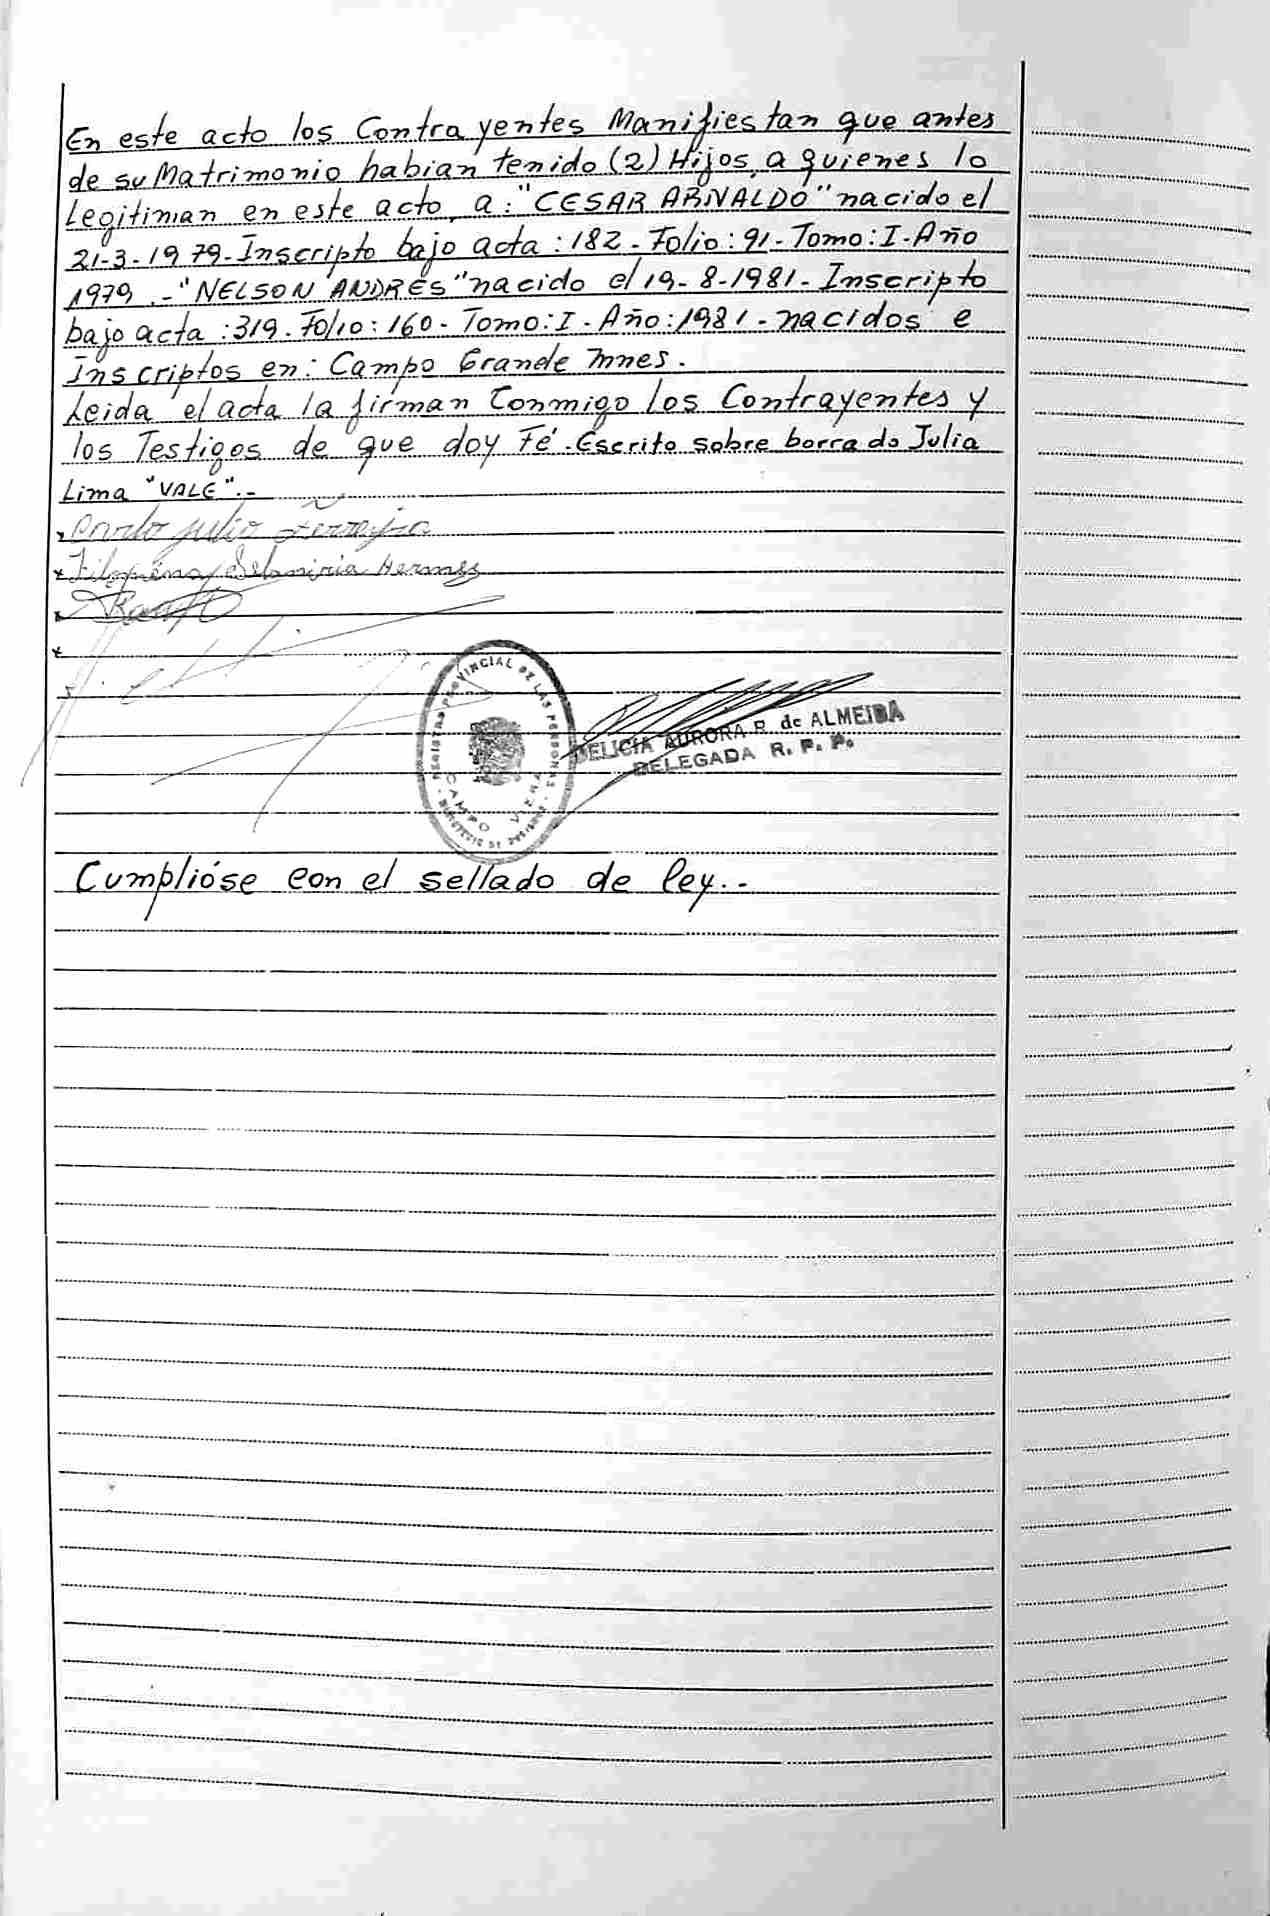 En este acto los Contrayentes Manifiestan que antes
de su Matrimonio habian tenido (2) Hijos, a quienes lo
Legitiman en este acto, a: "CESAR ARNALDO" nacido el
21-3-1979- Inscripto bajo acta: 182- Folio: 91- Tomo: I- Año
1979.- "NELSON ANDRÉS" nacido el 19-8-1981- Inscripto
bajo acta: 319- Folio: 160- Tomo: I- Año: 1981- nacidos e
Inscriptos en: Campo Grande Mnes.
Leida el acta la firman Conmigo los Contrayentes y
los Testigos de que doy Fé.- Escrito sobre borrado Julia
Lima "VALE".-
julio
REGISTRO PROVINCIAL DE LAS PERSONAS
CAMPO
DELICIA AURORA R. de ALMEIDA
DELEGADA R. P. P.
Cumplióse con el sellado de ley.-